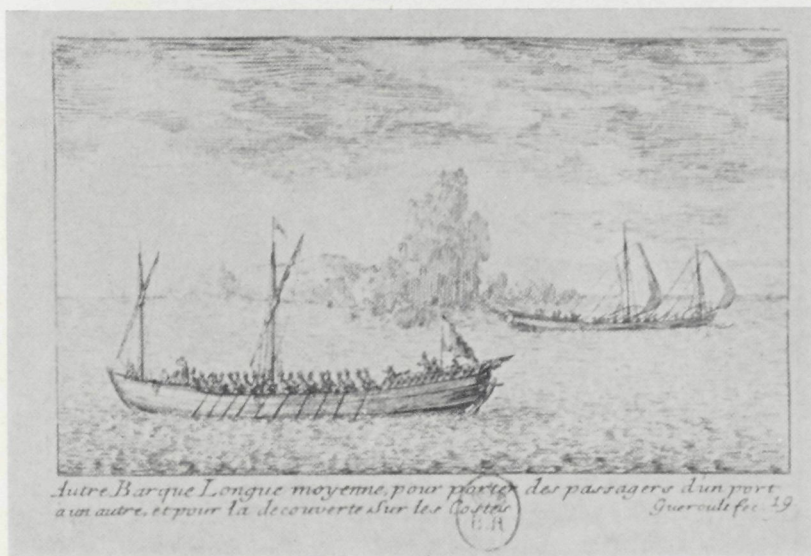 Autre Barque Longue moyenne, pour porter des passagers d'un port
a un autre, et pour la decouverte sur les Costes Gueroult fec 19